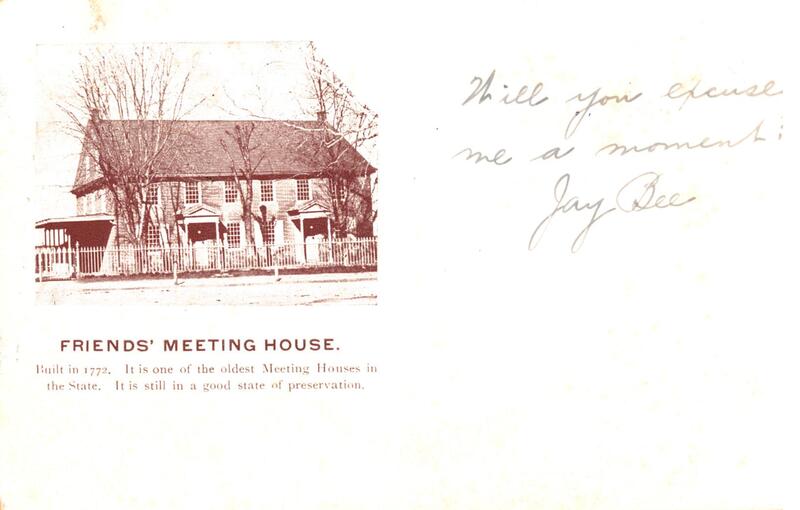 Will you excuse
me a moment:
Jay Bee
FRIENDS' MEETING HOUSE.
Built in 1772. It is one of the oldest Meeting Houses in
the State. It is still in a good state of preservation.